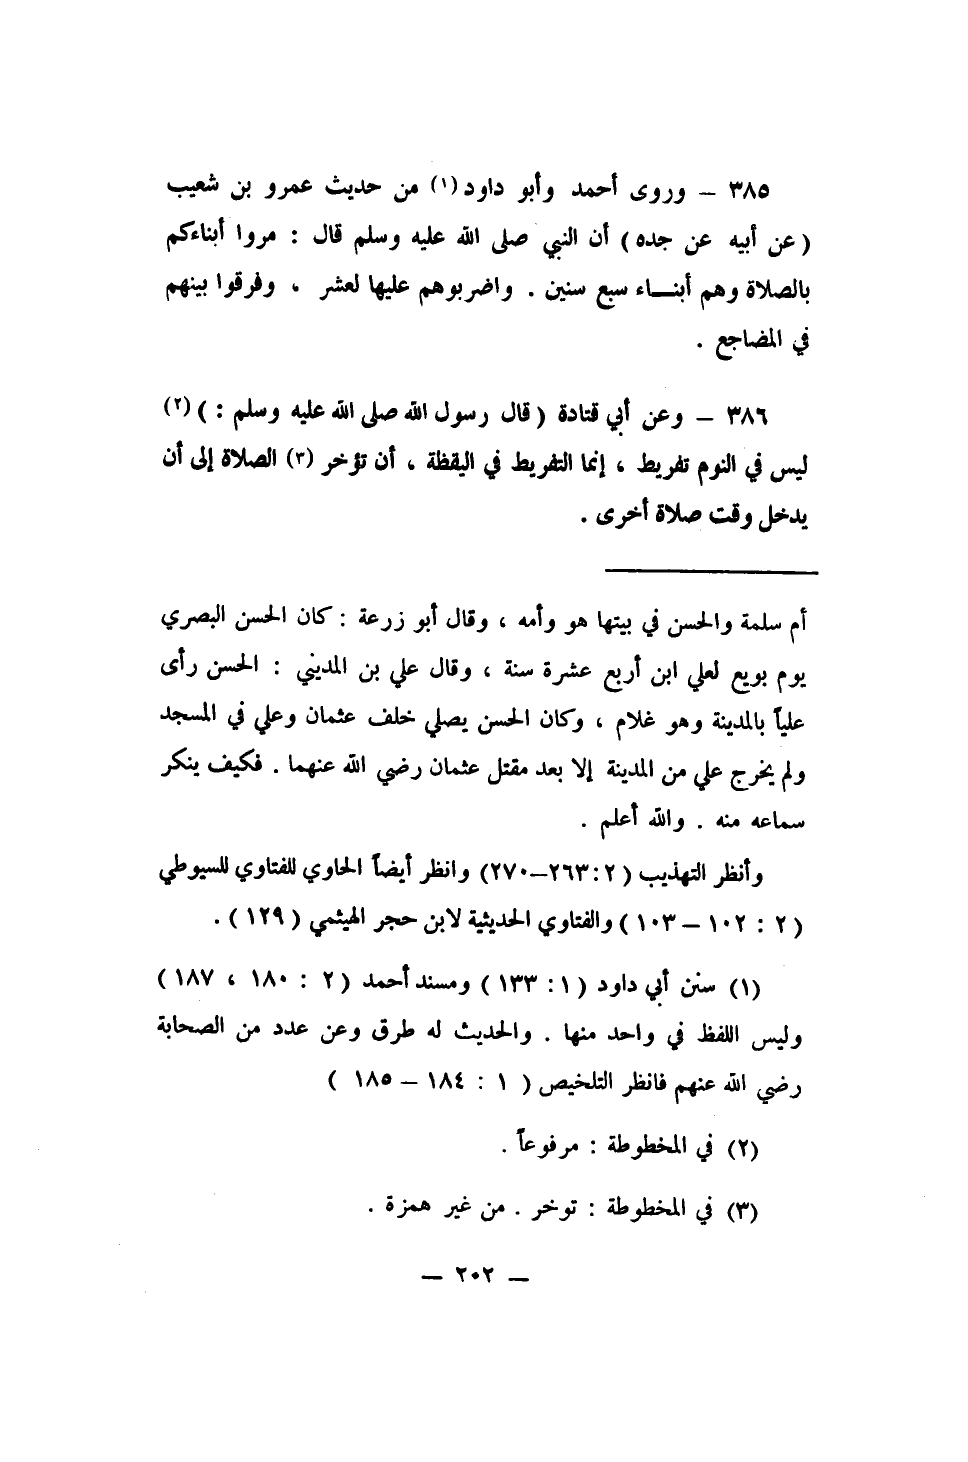 ٣٨٥ – وروى أحمد وأبو داود (١) من حديث عمرو بن شعيب
( عن أبيه عن جده ) أن النبي صلى الله عليه وسلم قال : مروا أبناءكم
بالصلاة وهم أبنـــاء سبع سنين . واضربوهم عليها لعشر ، وفرقوا بينهم
في المضاجع .
٣٨٦ – وعن أبي قتادة ( قال رسول الله صلى الله عليه وسلم : ) (٢)
ليس في النوم تفريط ، إنما التفريط في اليقظة ، أن تؤخر (٣) الصلاة إلى أن
يدخل وقت صلاة أخرى .
أم سلمة والحسن في بيتها هو وأمه ، وقال أبو زرعة : كان الحسن البصري
يوم بويع لعلي ابن أربع عشرة سنة ، وقال علي بن المديني : الحسن رأى
علياً بالمدينة وهو غلام ، وكان الحسن يصلي خلف عثمان وعلي في المسجد
ولم يخرج علي من المدينة إلا بعد مقتل عثمان رضي الله عنهما . فكيف ينكر
سماعه منه . والله أعلم .
وأنظر التهذيب ( ٢ : ٢٦٣–٢٧٠) وانظر أيضاً الحاوي للفتاوي للسيوطي
( ٢ : ١٠٢ – ١٠٣ ) والفتاوي الحديثية لابن حجر الهيثمي ( ١٢٩ ) .
(١) سنن أبي داود ( ١ : ١٣٣ ) ومسند أحمد ( ٢ : ١٨٠ ، ١٨٧ )
وليس اللفظ في واحد منها . والحديث له طرق وعن عدد من الصحابة
رضي الله عنهم فانظر التلخيص ( ١ : ١٨٤ – ١٨٥ )
(٢) في المخطوطة : مرفوعاً .
(٣) في المخطوطة : توخر . من غير همزة .
– ٢٠٢ –